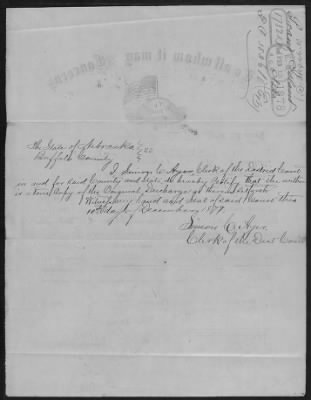 To all whom it may Concern
The State of Nebraska } ss
Buffalo County }
I Simon C. Ayer, Clerk of the District Court
in and for said County and State do hereby Certify that the within
is a true Copy of the Original Discharge as therein set forth
Witness my hand and Seal of said Court this
10th day of December 1879.
Simon C. Ayer.
Clerk of the Dist Court